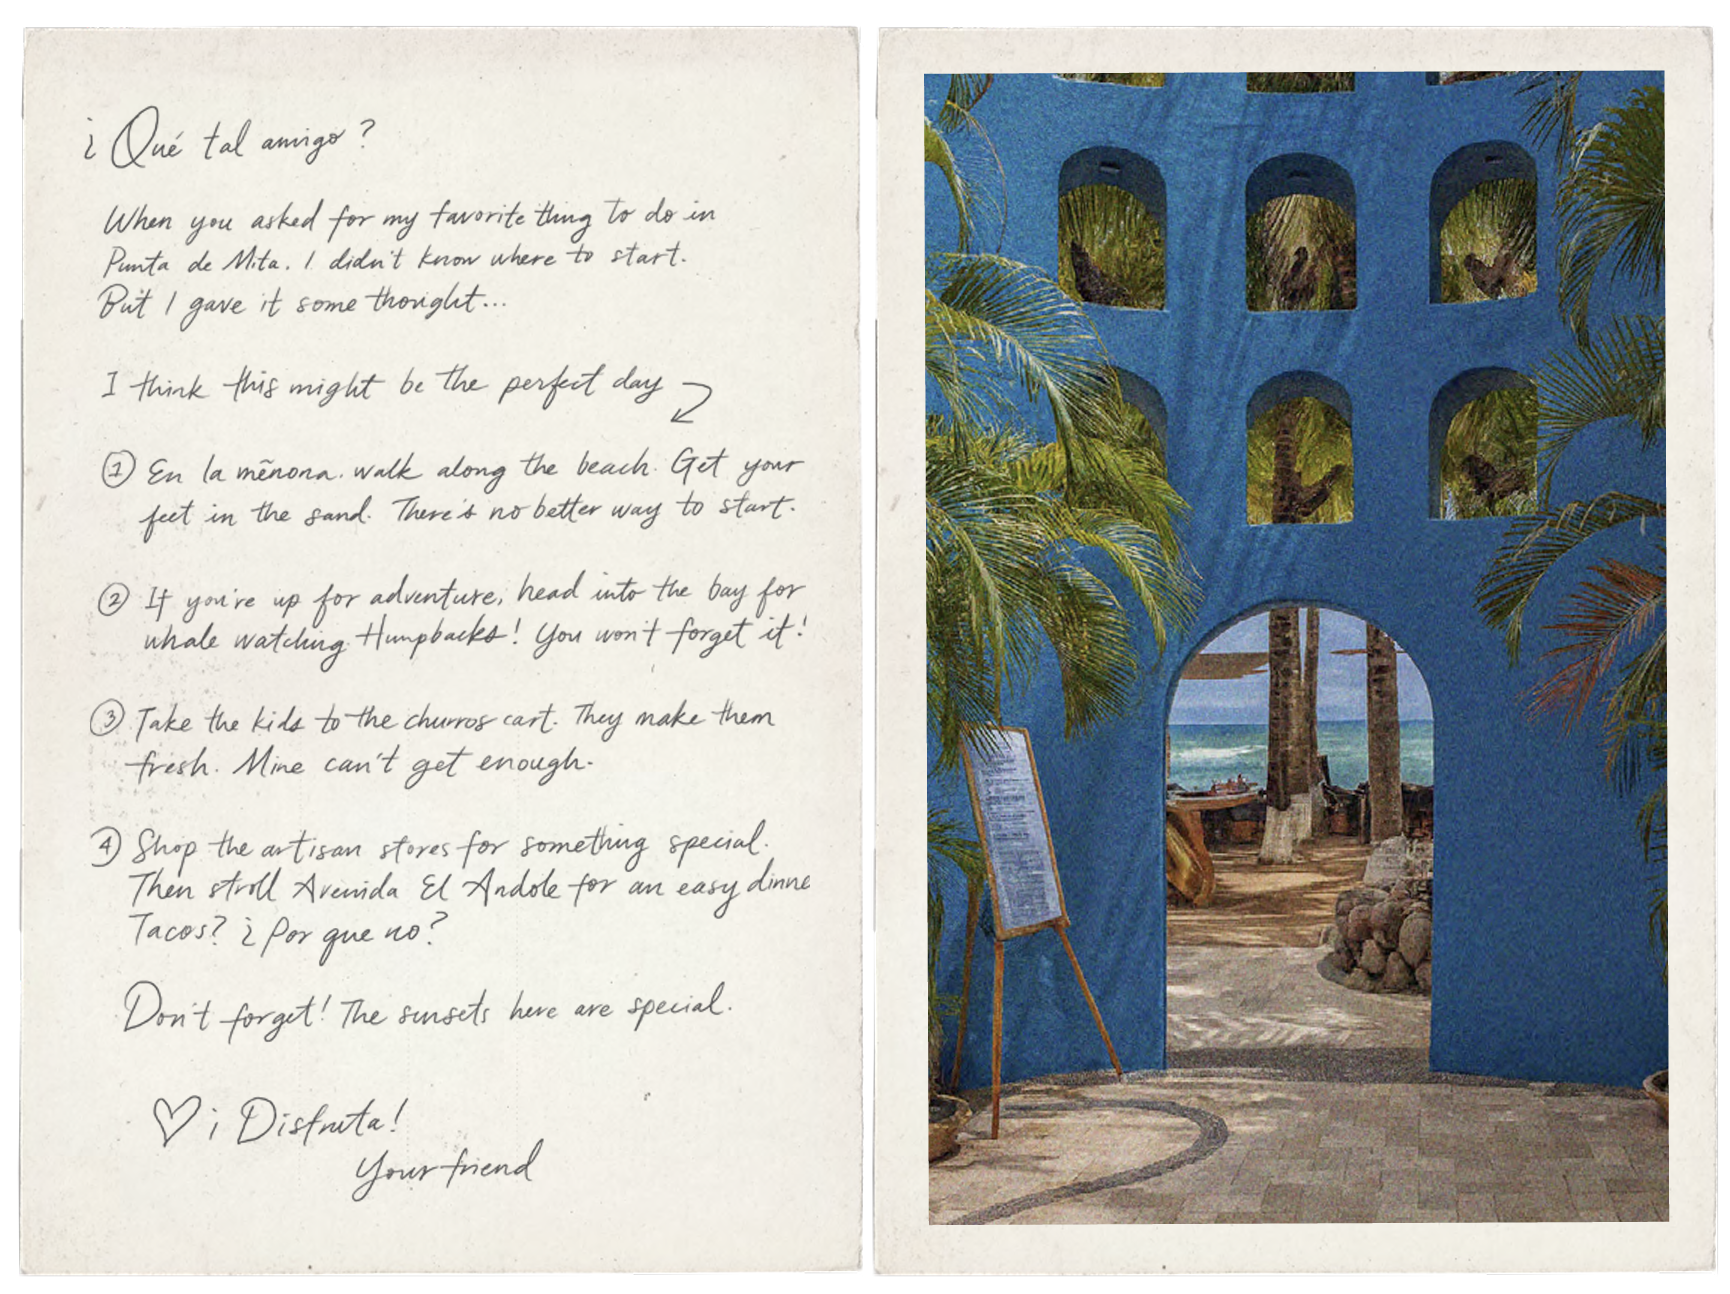 ¿Qué tal amigo?
When you asked for my favorite thing to do in
Punta de Mita. I didn't know where to start.
But I gave it some thought...
I think this might be the perfect day
① En la mēnona. walk along the beach. Get your
feet in the sand. There's no better way to start.
② If you're up for adventure, head into the bay for
whale watching Humpbacks! You won't forget it!
③ Take the kids to the churros cart. They make them
fresh. Mine can't get enough.
④ Shop the artisan stores for something special.
Then stroll Avenida El Andole for an easy dinne
Tacos? ¿Por que no?
Don't forget! The sunsets here are special.
♡ ¡Disfruta!
Your friend